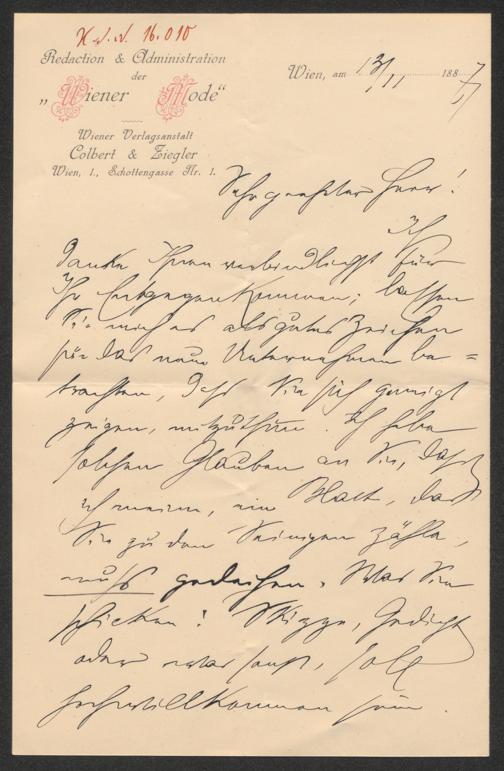 16.010
Redaction & Administration
der
„Wiener Mode“
Wiener Verlagsanstalt
Colbert & Ziegler
Wien, I., Schottengasse Nr. 1.
Wien, am 13/11 1887
Sehr geehrter Herr!
Ich
danke Ihnen verbindlichst für
Ihr Entgegenkommen; lassen
Sie mich es als gutes Zeichen
für das neue Unternehmen be=
trachten, daß Sie sich geneigt
zeigen, mitzuthun. Ich habe
solchen Glauben an Sie, daß
ich meine, ein Blatt, das
Sie zu den Seinigen zähle,
muß gedeihen. Was Sie
schicken! Skizze, Gedicht
oder was sonst, soll
hochwillkommen sein.